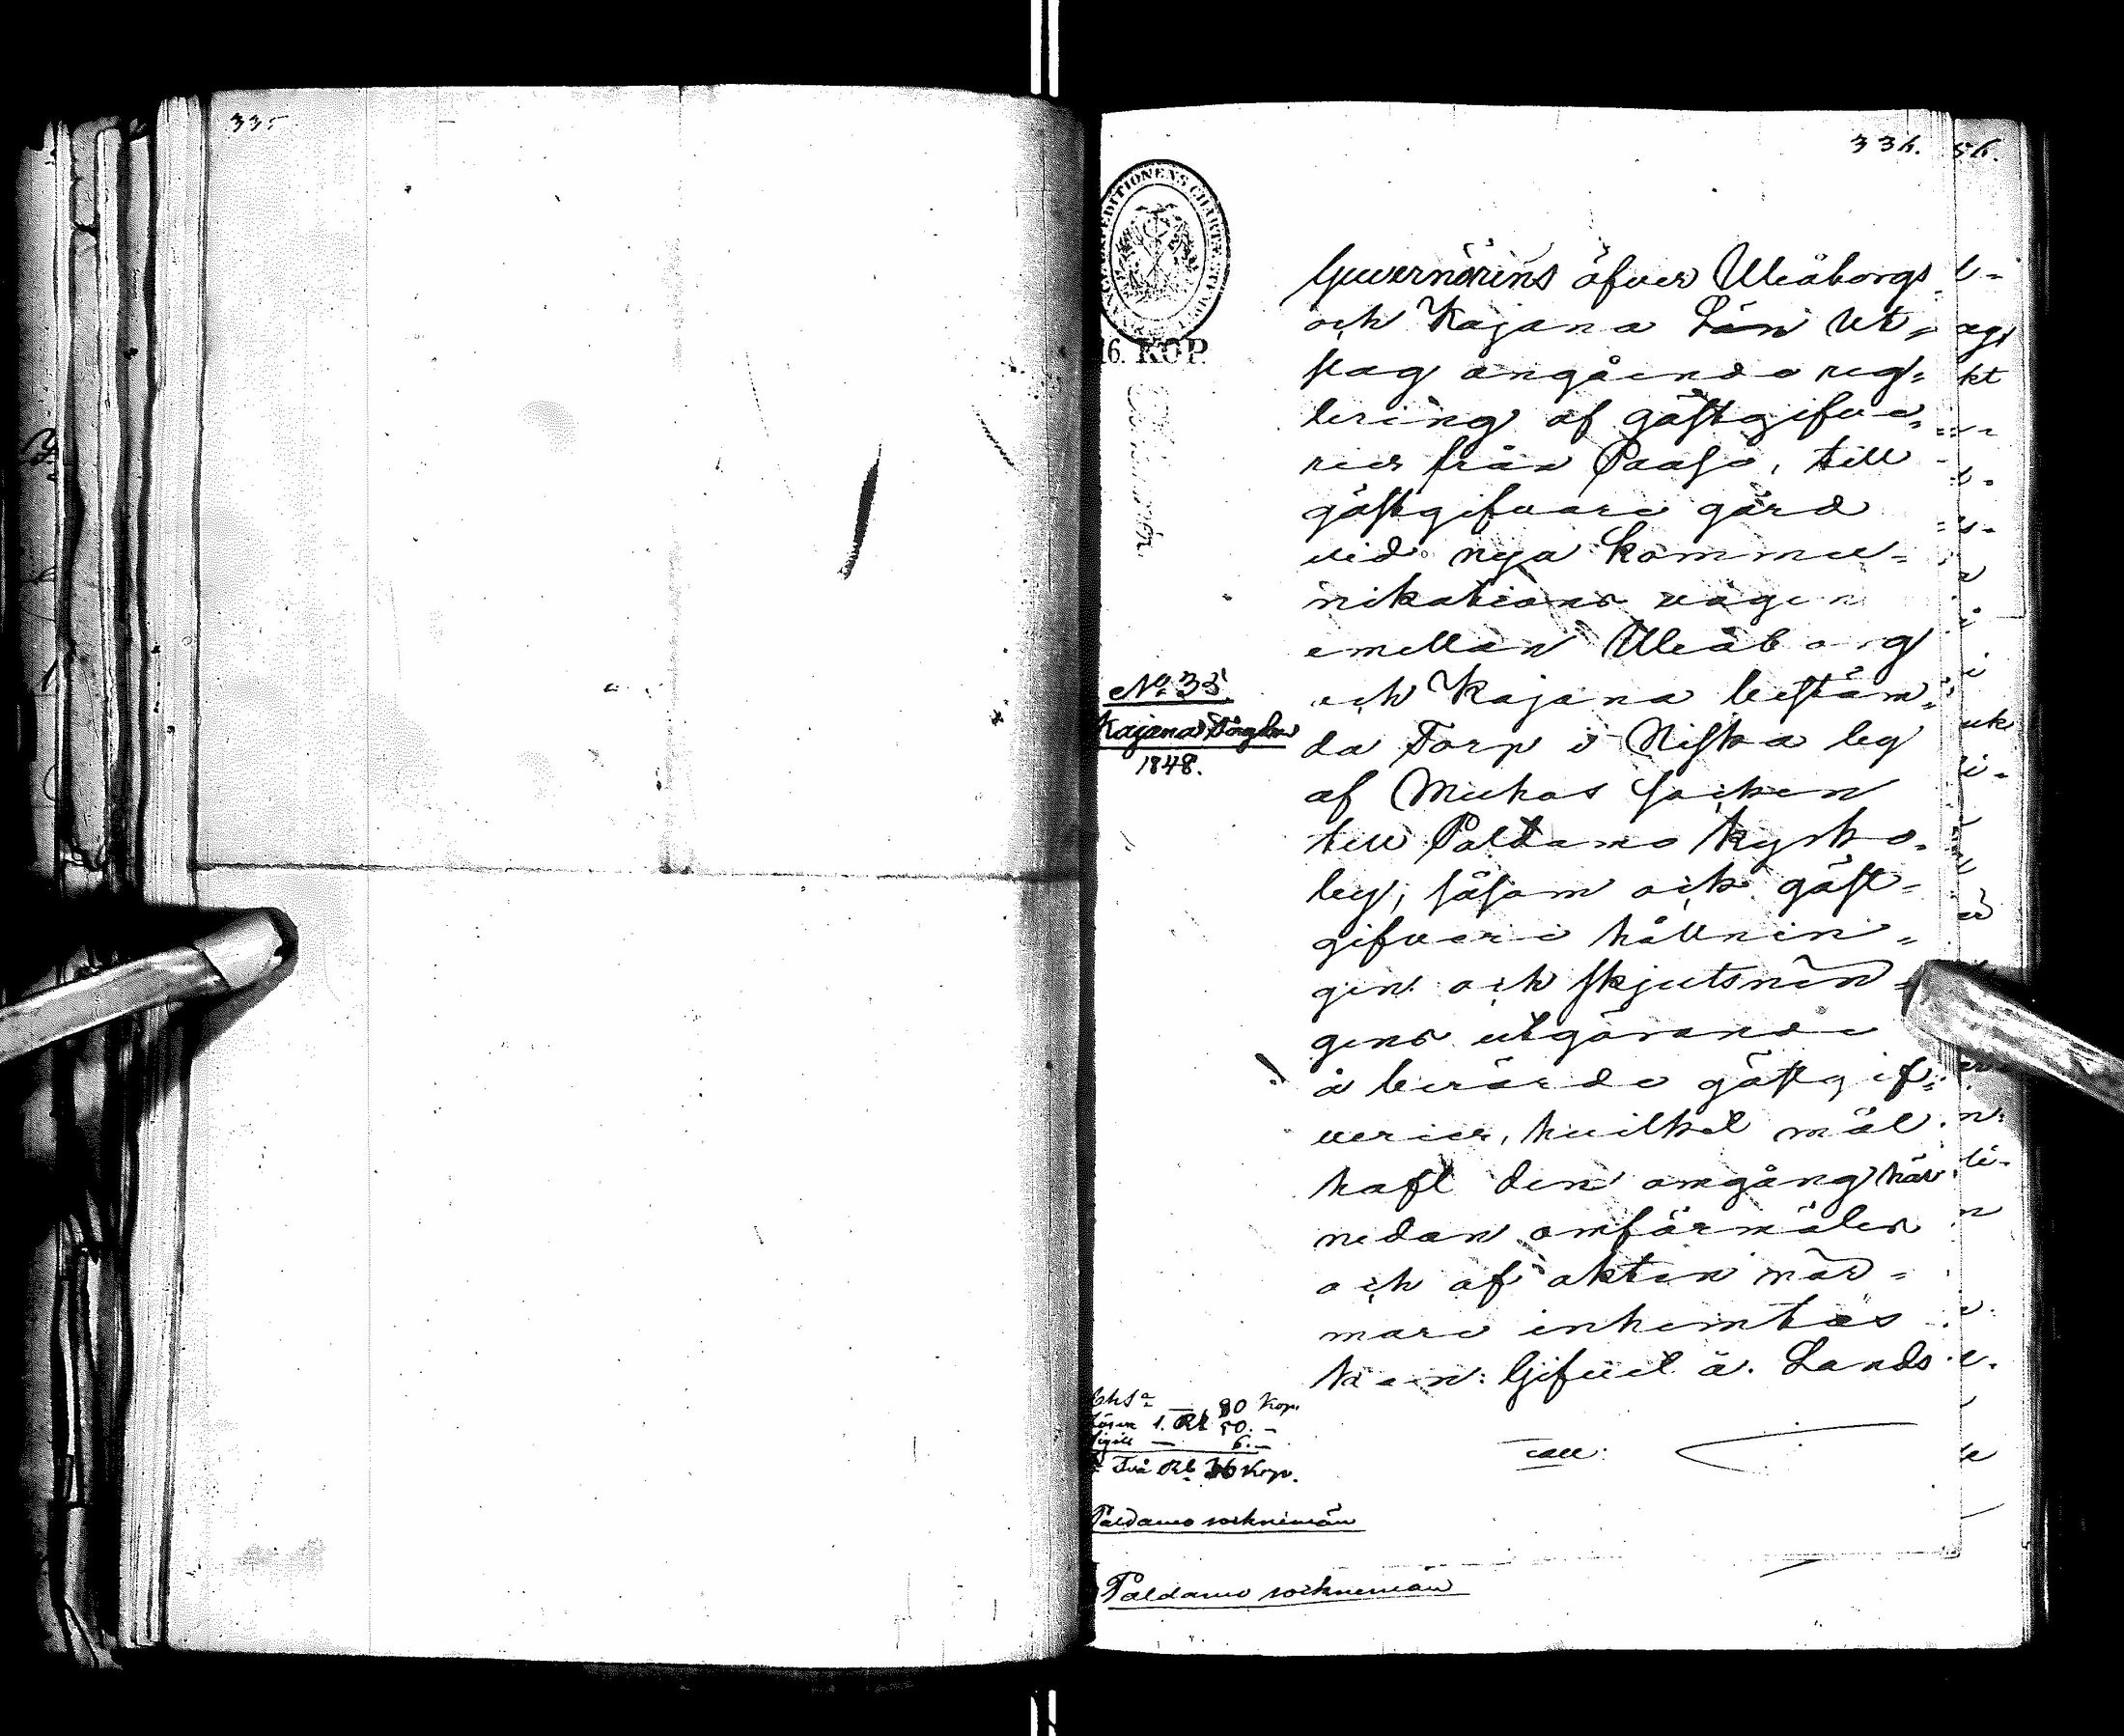 335
336.
56.
16. KOP.
Guvernörens öfver Uleåborgs
och Kajana Län Ut=
slag angående reg=
lering af gästgifve=
rier från Paaso, till
gästgifvare gård
vid nya kommu=
nikations vägen
emellan Uleåborg
och Kajana bestäm=
da Torp i Niska by
af Muhos socken
till Paldamo kyrko=
by, såsom ock gäst=
gifveri hållnin=
gen och skjutsnin=
gens utgörande
å berörde gästgif=
verier, hvilket mål
haft den omgång här
nedan omförmäles
och af akten när=
mare inhemtas
kan: Gifvet å Lands
No 35
Kajana Fögderi
1848.
80 Kop.
Lösen 1. Rb 50. –
Sigill — 6. –
Två Rb 36 Kop.
Paldamo sockneman
Paldamo sockneman